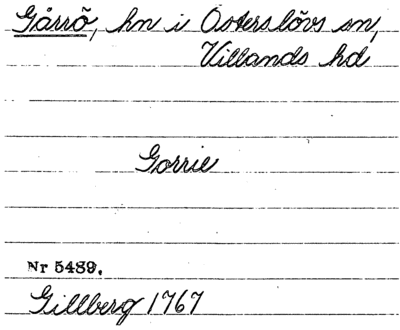 Gårrö, hn i Österslövs sn,
Villands hd
Gorrie
Nr 5489.
Gillberg 1767